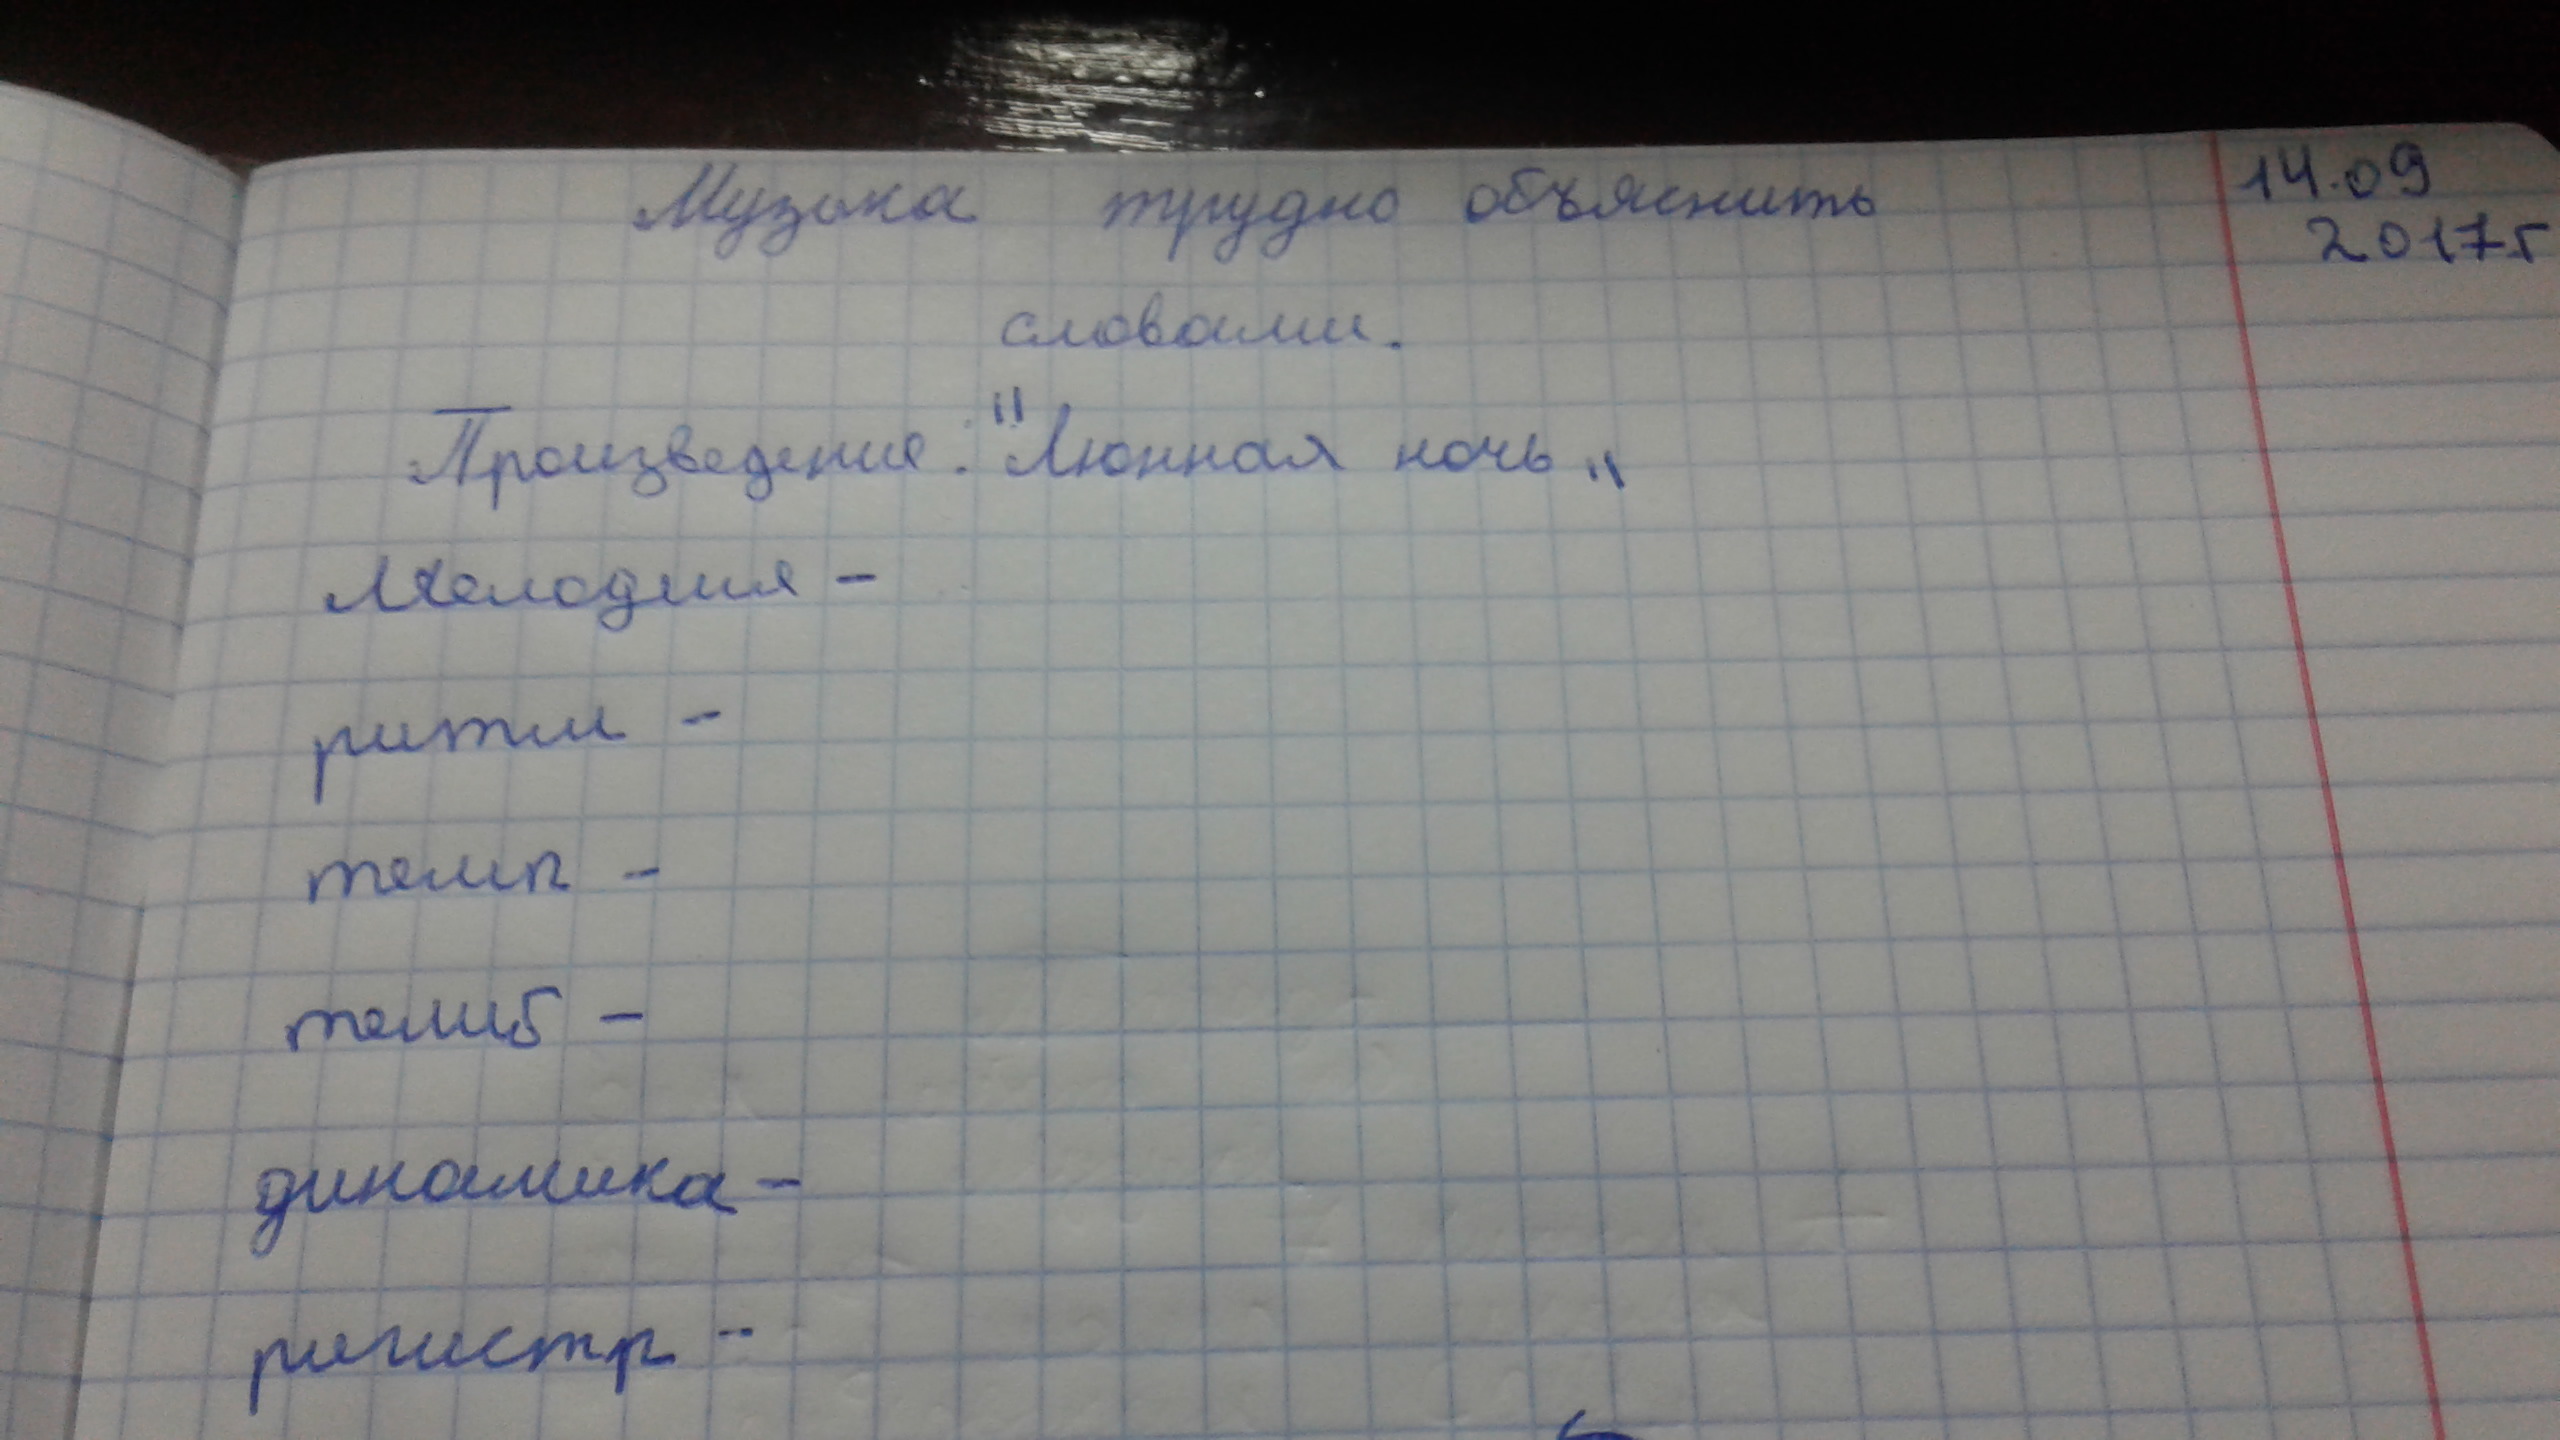 Музыка трудно объяснить
14.09
2017г
словами.
Произведение: "Люнная ночь"
Мелодия -
ритм -
темп -
темб -
динамика -
регистр -